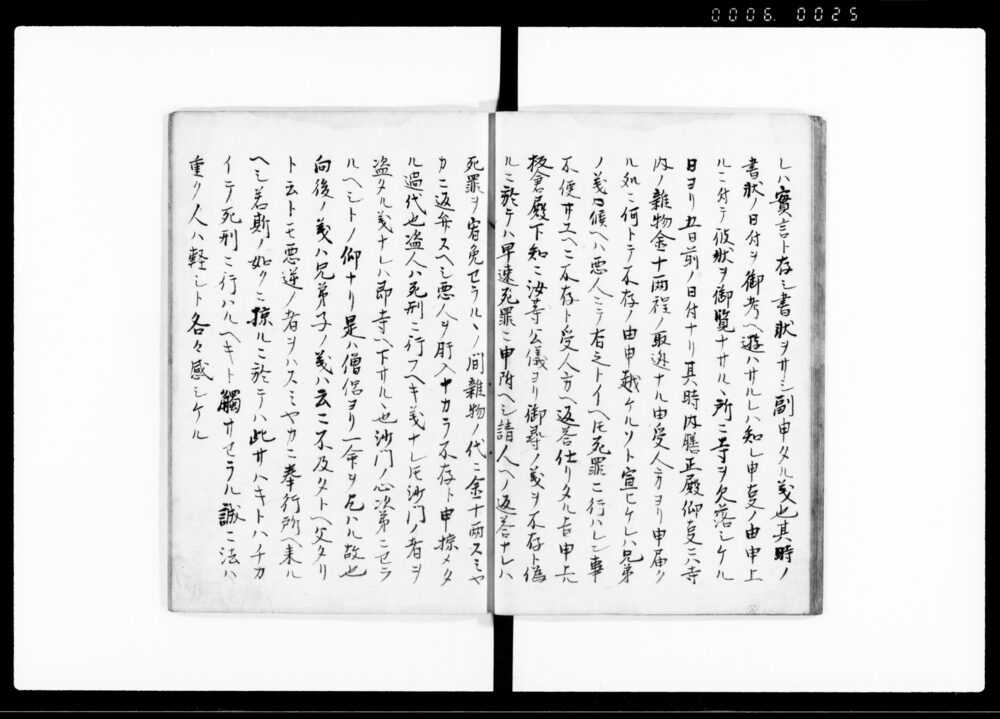 0006. 0025
レハ實言ト存シ書狀ヲサシ副申タル義也其時ノ
書狀ノ日付ヲ御考ヘ遊ハサルレハ知レ申更ノ由申上
ルニ付テ彼狀ヲ御覽ナサルヽ所ニ寺ヲ欠落シケル
日ヨリ五日前ノ日付ナリ其時内膳正殿仰更ニハ寺
内ノ雜物金十両程ノ取迯ナル由受人方ヨリ申届ク
ル処ニ何トテ不存ノ由申越ケルソト宣ヒケレハ兄弟
ノ義乃候ヘハ悪人ニテ有之トイヘ𪜈死罪ニ行ハレン事
不便サスヘニ不存ト受人方ヘ返荅仕リタル旨申上
板倉殿下知ニ汝䓁公儀ヨリ御尋ノ義ヲ不存ト偽
ルニ於テハ早速死罪ニ申附ヘシ請人ヘノ返荅ナレハ
死罪ヲ宥免セラルヽノ間雜物ノ代ニ金十両スミヤ
カニ返弁スヘシ悪人ヲ肝入ナカラ不存ト申掠メタ
ル過代也盗人ハ死刑ニ行フヘキ義ナレ𪜈沙門ノ者ヲ
盗タル義ナレハ即寺ヘ下サルヽ也沙門ノ心次第ニセラ
ルヘシトノ仰ナリ是ハ僧侶ヨリ一命ヲ乞ハル故也
向後ノ義ハ兄弟子ノ義ハ云ニ不及タトヘ父タリ
ト云トモ悪逆ノ者ヲハスミヤカニ奉行所ヘ来ル
ヘシ若斯ノ如クニ掠ルニ於テハ此サハキトハチカ
イテ死刑ニ行ハルヘキト觸サセラル誠ニ法ハ
重ク人ハ軽シト各々感シケル